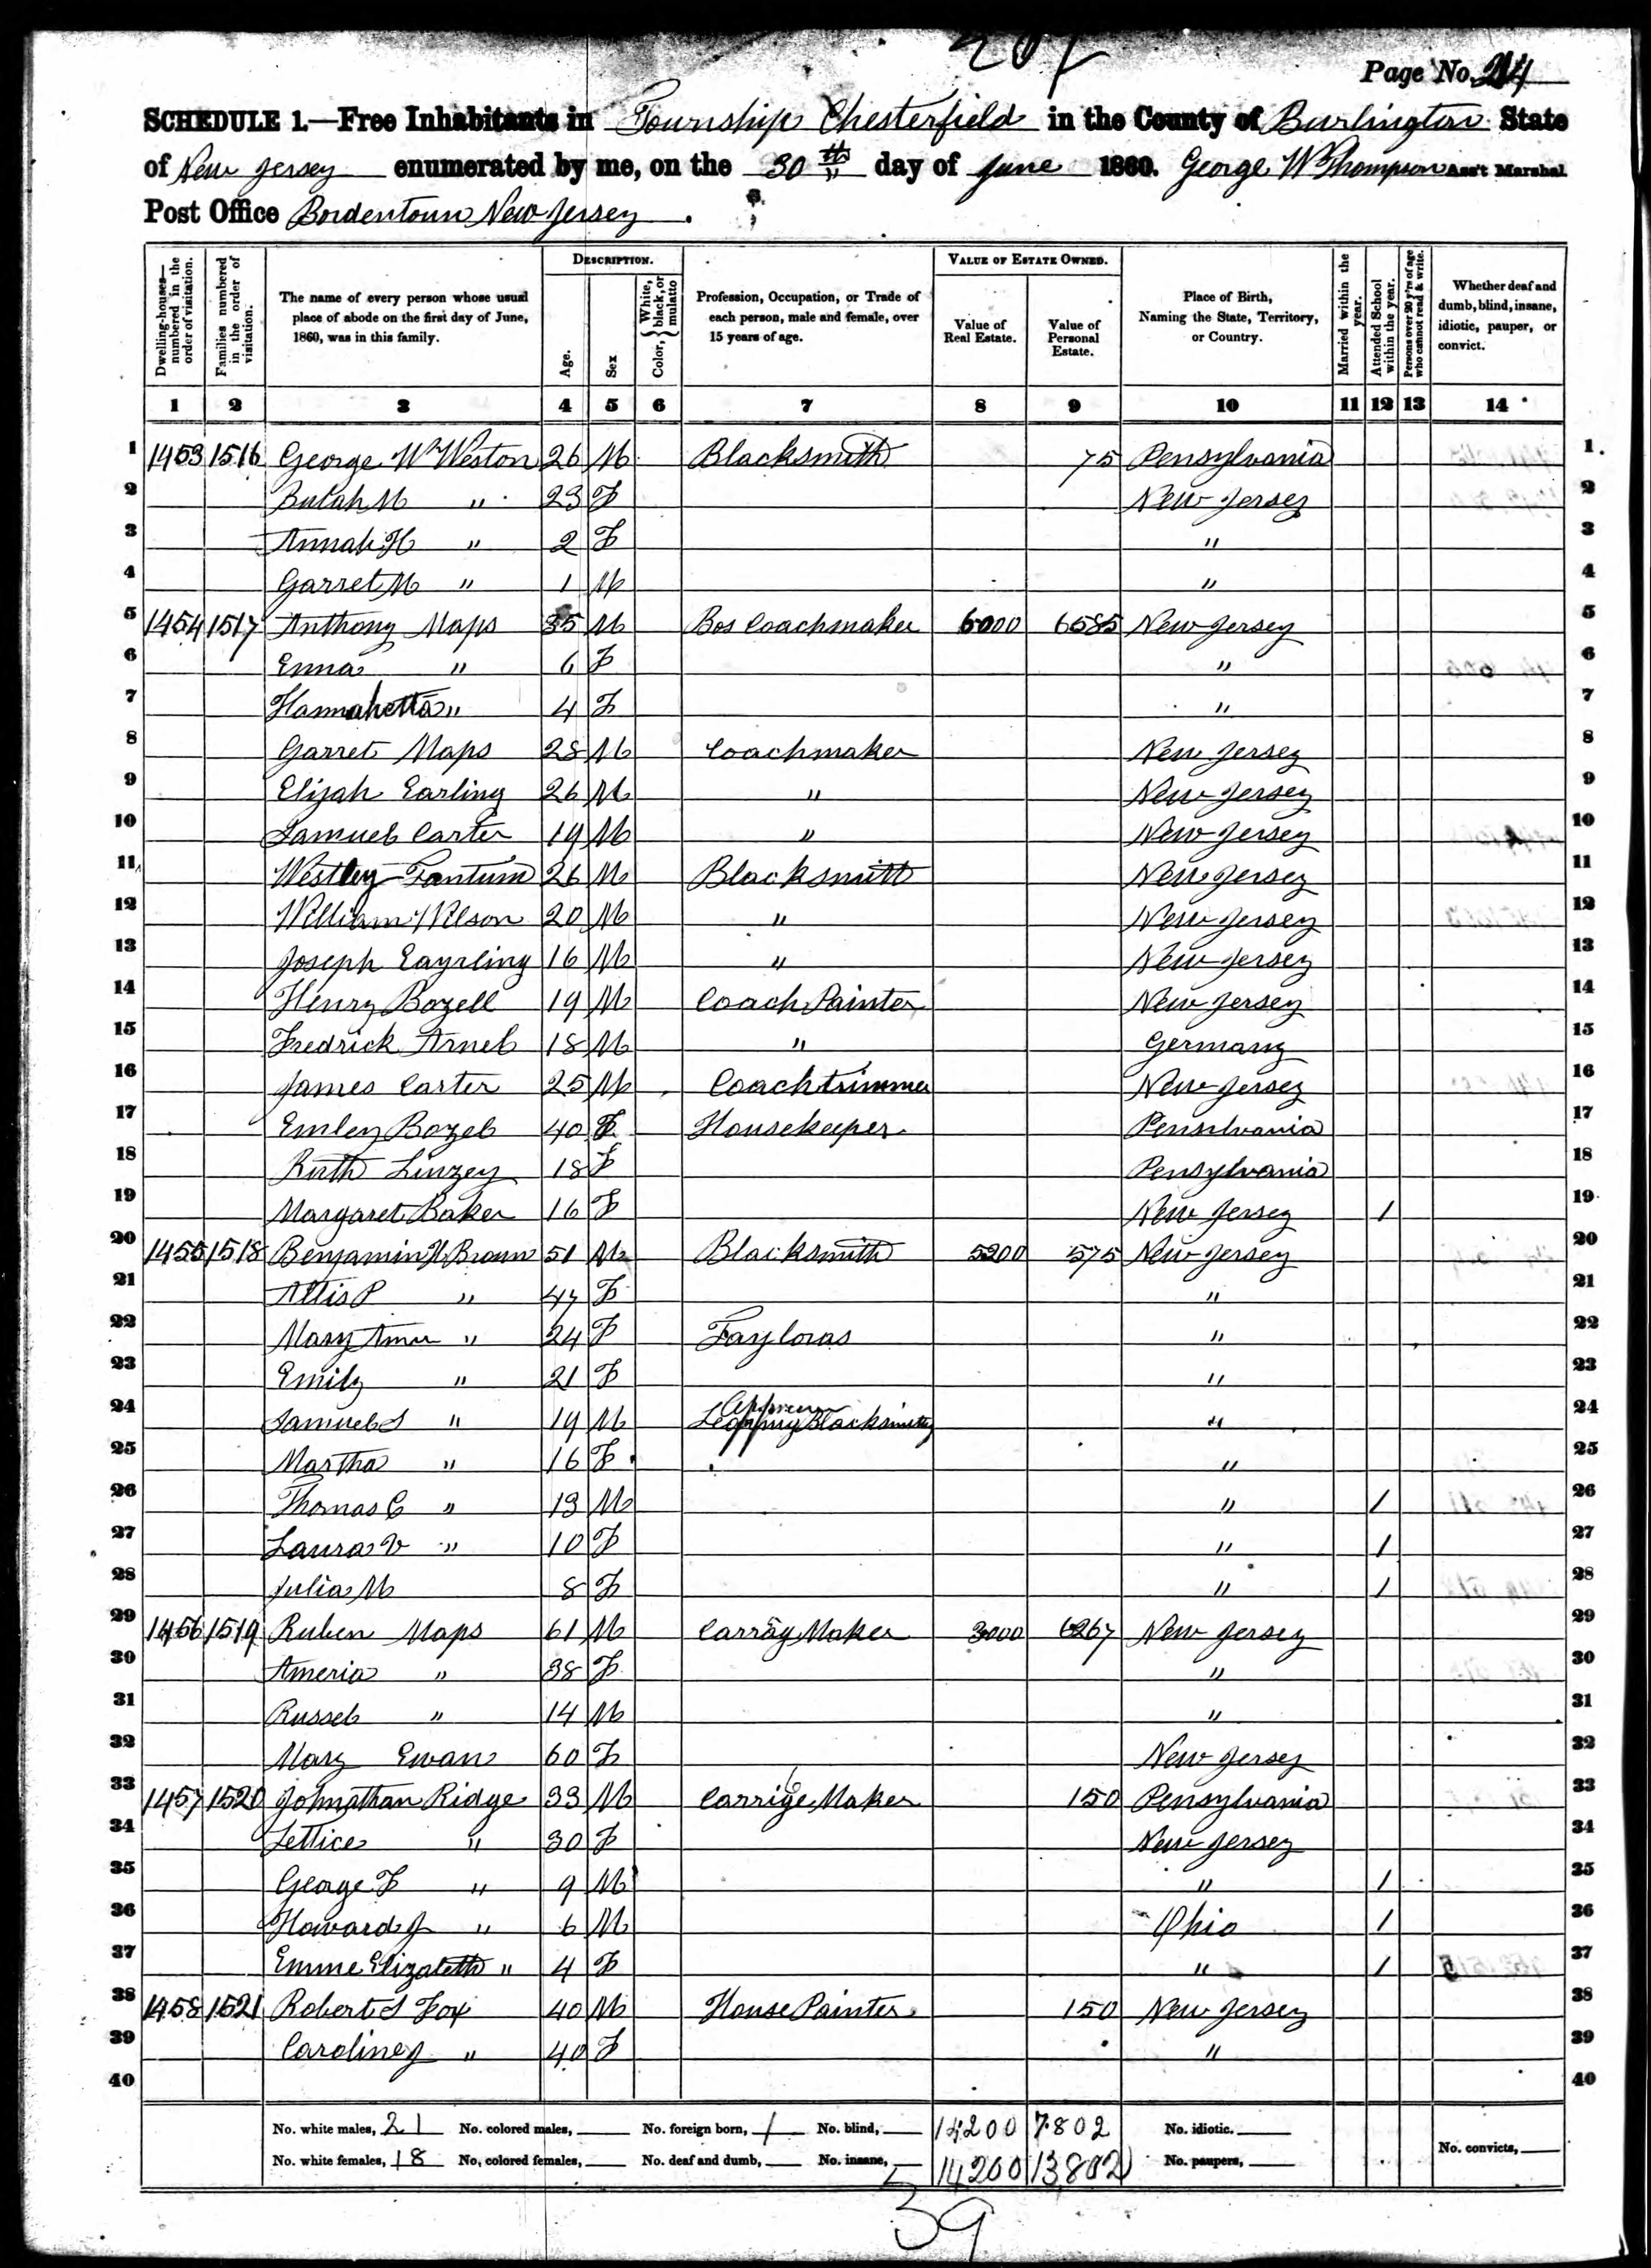 207
Page No. 214
SCHEDULE 1.—Free Inhabitants in Township Chesterfield in the County of Burlington State
of New Jersey enumerated by me, on the 30th day of June 1860. George W Thompson Ass't Marshal
Post Office Bordentown New Jersey.
Dwelling-houses—numbered in the order of visitation. Families numbered in the order of visitation. The name of every person whose usual place of abode on the first day of June, 1860, was in this family. DESCRIPTION. Age. Sex Color, White, black, or mulatto Profession, Occupation, or Trade of each person, male and female, over 15 years of age. VALUE OF ESTATE OWNED. Value of Real Estate. Value of Personal Estate. Place of Birth, Naming the State, Territory, or Country. Married within the year. Attended School within the year. Persons over 20 y'rs of age who cannot read & write. Whether deaf and dumb, blind, insane, idiotic, pauper, or convict.
1 2 3 4 5 6 7 8 9 10 11 12 13 14
1 1453 1516 George W Weston 26 M Blacksmith 75 Pensylvania 1
2 Bulah M " 23 F New Jersey 2
3 Annah H " 2 F " 3
4 Garret M " 1 M " 4
5 1454 1517 Anthony Maps 35 M Bos Coachmaker 6000 6585 New Jersey 5
6 Enna " 6 F " 6
7 Hannahetta " 4 F " 7
8 Garret Maps 28 M Coachmaker New Jersey 8
9 Elijah Earling 26 M " New Jersey 9
10 Samuel Carter 19 M " New Jersey 10
11 Westley Fantum 26 M Blacksmith New Jersey 11
12 William Wilson 20 M " New Jersey 12
13 Joseph Eayrling 16 M " New Jersey 13
14 Henry Bozell 19 M Coach Painter New Jersey 14
15 Fredrick Arnel 18 M " Germany 15
16 James Carter 25 M Coachtrimmer New Jersey 16
17 Emley Bozel 40 F Housekeeper Pensilvania 17
18 Ruth Linzey 18 F Pensylvania 18
19 Margaret Baker 16 F New Jersey / 19
20 1455 1518 Benjamin H Brown 51 M Blacksmith 5200 575 New Jersey 20
21 Altis P " 47 F " 21
22 Mary Ann " 24 F Tayloras " 22
23 Emily " 21 F " 23
24 Samuel S " 19 M Blacksmith " 24
25 Martha " 16 F " 25
26 Thomas C " 13 M " / 26
27 Laura V " 10 F " / 27
28 Julia M 8 F " / 28
29 1456 1519 Ruben Maps 61 M Carrag Maker 3000 6267 New Jersey 29
30 Ameria " 38 F " 30
31 Russel " 14 M " 31
32 Mary Ewan 60 F New Jersey 32
33 1457 1520 Johnathan Ridge 33 M Carrige Maker 150 Pensylvania 33
34 Lettice " 30 F New Jersey 34
35 George F " 9 M " / 35
36 Howard J " 6 M Ohio / 36
37 Emme Elizabeth " 4 F " / 37
38 1458 1521 Robert S Fox 40 M House Painter 150 New Jersey 38
39 Caroline J " 40 F " 39
40 40
No. white males, 21 No. colored males, No. foreign born, 1 No. blind, 14200 7802 No. idiotic.
No. white females, 18 No. colored females, No. deaf and dumb, No. insane, 14200 13,802 No. paupers, No. convicts,
39